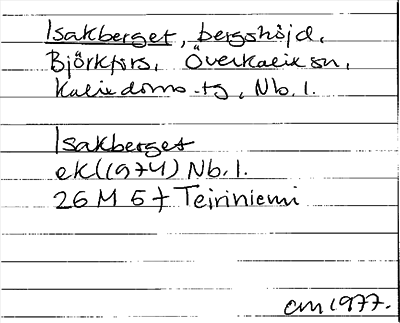 Isakberget, bergshöjd,
Björkfors, Överkalix sn,
Kalix doms.tg, Nb. l.
Isakberget
ek (1974) Nb. l.
26 M 5 f Teiriniemi
cm 1977.